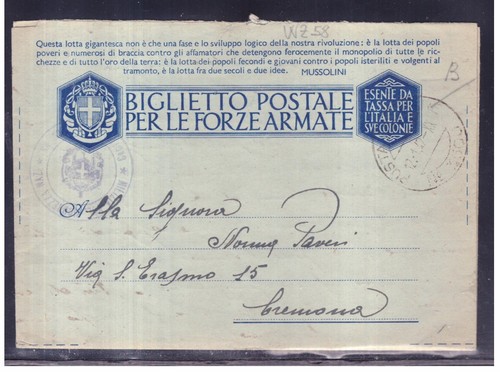 WZ58
Questa lotta gigantesca non è che una fase e lo sviluppo logico della nostra rivoluzione: è la lotta dei popoli
poveri e numerosi di braccia contro gli affamatori che detengono ferocemente il monopolio di tutte le ric-
chezze e di tutto l'oro della terra: è la lotta dei popoli fecondi e giovani contro i popoli isteriliti e volgenti al
tramonto, è la lotta fra due secoli e due idee. MUSSOLINI
B
BIGLIETTO POSTALE
PER LE FORZE ARMATE
ESENTE DA
TASSA PER
L'ITALIA E
SVE COLONIE
POSTA
Alla Signora
Norma Paveri
Via S. Erasmo 15
Cremona